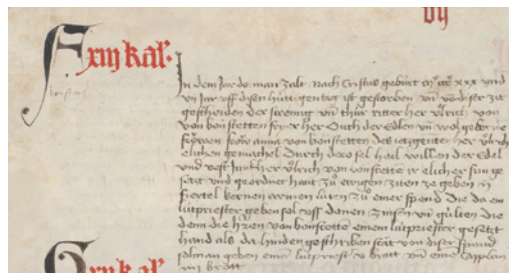 vij
F xiij kal'
In dem Jar do man zalt nach Cristus gebürt mº ccc xxx vnd
vij Jar vff disen hüttigen tag ist gestorben vn̄ von diser zit
gescheiden der streng vn̄ thür ritter her vlrich von
von bonstetten fryer her Ouch der Edlen vn̄ wolgeborne
frowen frow anna von bonstetten des ietzgenten her vlrich
elichen gemachel Durch dero sel heil willen der Edel
vnd vest Junkher vlrich von bonstette ir elicher sun ge
setzt vnd geordnet haut zů ewigen ziten ze geben
fiertel kernen armen lüten zů einer spend die da ein
lütpriester geben sol vff denen zinsen vn̄ gülten die
denn die h'ren von bonstette einem lütpriester gesetzt
hand als da hinden geschriben stat von diser spend
sol man geben eim lütpriest' bratt vnd eine Capplan
bratt
G xij kal'